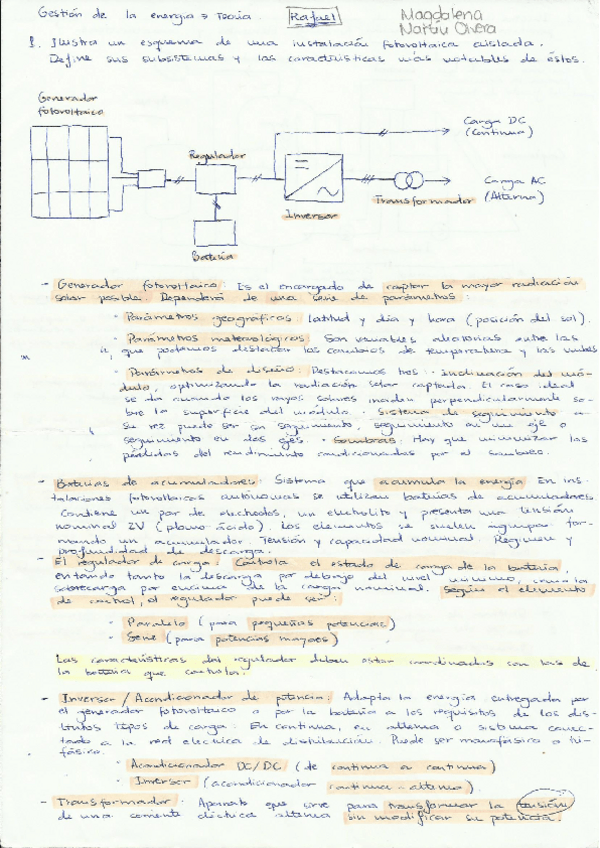 Gestión de la energía → Teoría Rafael Magdalena
Martín Olvera
1. Ilustra un esquema de una instalación fotovoltaica aislada.
Define sus subsistemas y las características más notables de éstos.
Generador
fotovoltaico
Carga DC
(Continua)
Regulador
Carga AC
(Alterna)
Transformador
Inversor
Batería
- Generador fotovoltaico: Es el encargado de captar la mayor radiación
solar posible. Dependerá de una serie de parámetros:
· Parámetros geográficos: latitud y día y hora (posición del sol).
· Parámetros meteorológicos: Son variables aleatorias entre las
que podemos destacar los cambios de temperatura y las nubes
· Parámetros de diseño: Destacamos tres: · Inclinación del mó-
dulo, optimizando la radiación solar captada. El caso ideal
se da cuando los rayos solares inciden perpendicularmente so-
bre la superficie del módulo. · Sistema de seguimiento a
su vez puede ser sin seguimiento, seguimiento en un eje o
seguimiento en dos ejes. · Sombras: Hay que minimizar las
pérdidas del rendimiento condicionadas por el sombreo.
- Baterías de acumuladores: Sistema que acumula la energía. En ins-
talaciones fotovoltaicas autónomas se utilizan baterías de acumuladores
Contiene un par de electrodos, un electrolito y presenta una tensión
nominal 2V (plomo-ácido). Los elementos se suelen agrupar for-
mando un acumulador. Tensión y capacidad nominal. Régimen y
profundidad de descarga.
- El regulador de carga: Controla el estado de carga de la batería,
evitando tanto la descarga por debajo del nivel mínimo, como la
sobrecarga por encima de la carga nominal. Según el elemento
de control, el regulador puede ser:
· Paralelo (para pequeñas potencias)
· Serie (para potencias mayores)
Las características del regulador deben estar coordinadas con las de
la batería que controla.
- Inversor / Acondicionador de potencia: Adapta la energía entregada por
el generador fotovoltaico o por la batería a los requisitos de los dis-
tintos tipos de carga. En continua, en alterna o sistema conec-
tado a la red eléctrica de distribución. Puede ser monofásico o tri-
fásico.
· Acondicionador DC/DC (de continua a continua)
· Inversor (acondicionador continua - alterna)
- Transformador: Aparato que sirve para transformar la tensión
de una corriente eléctrica alterna sin modificar su potencia.